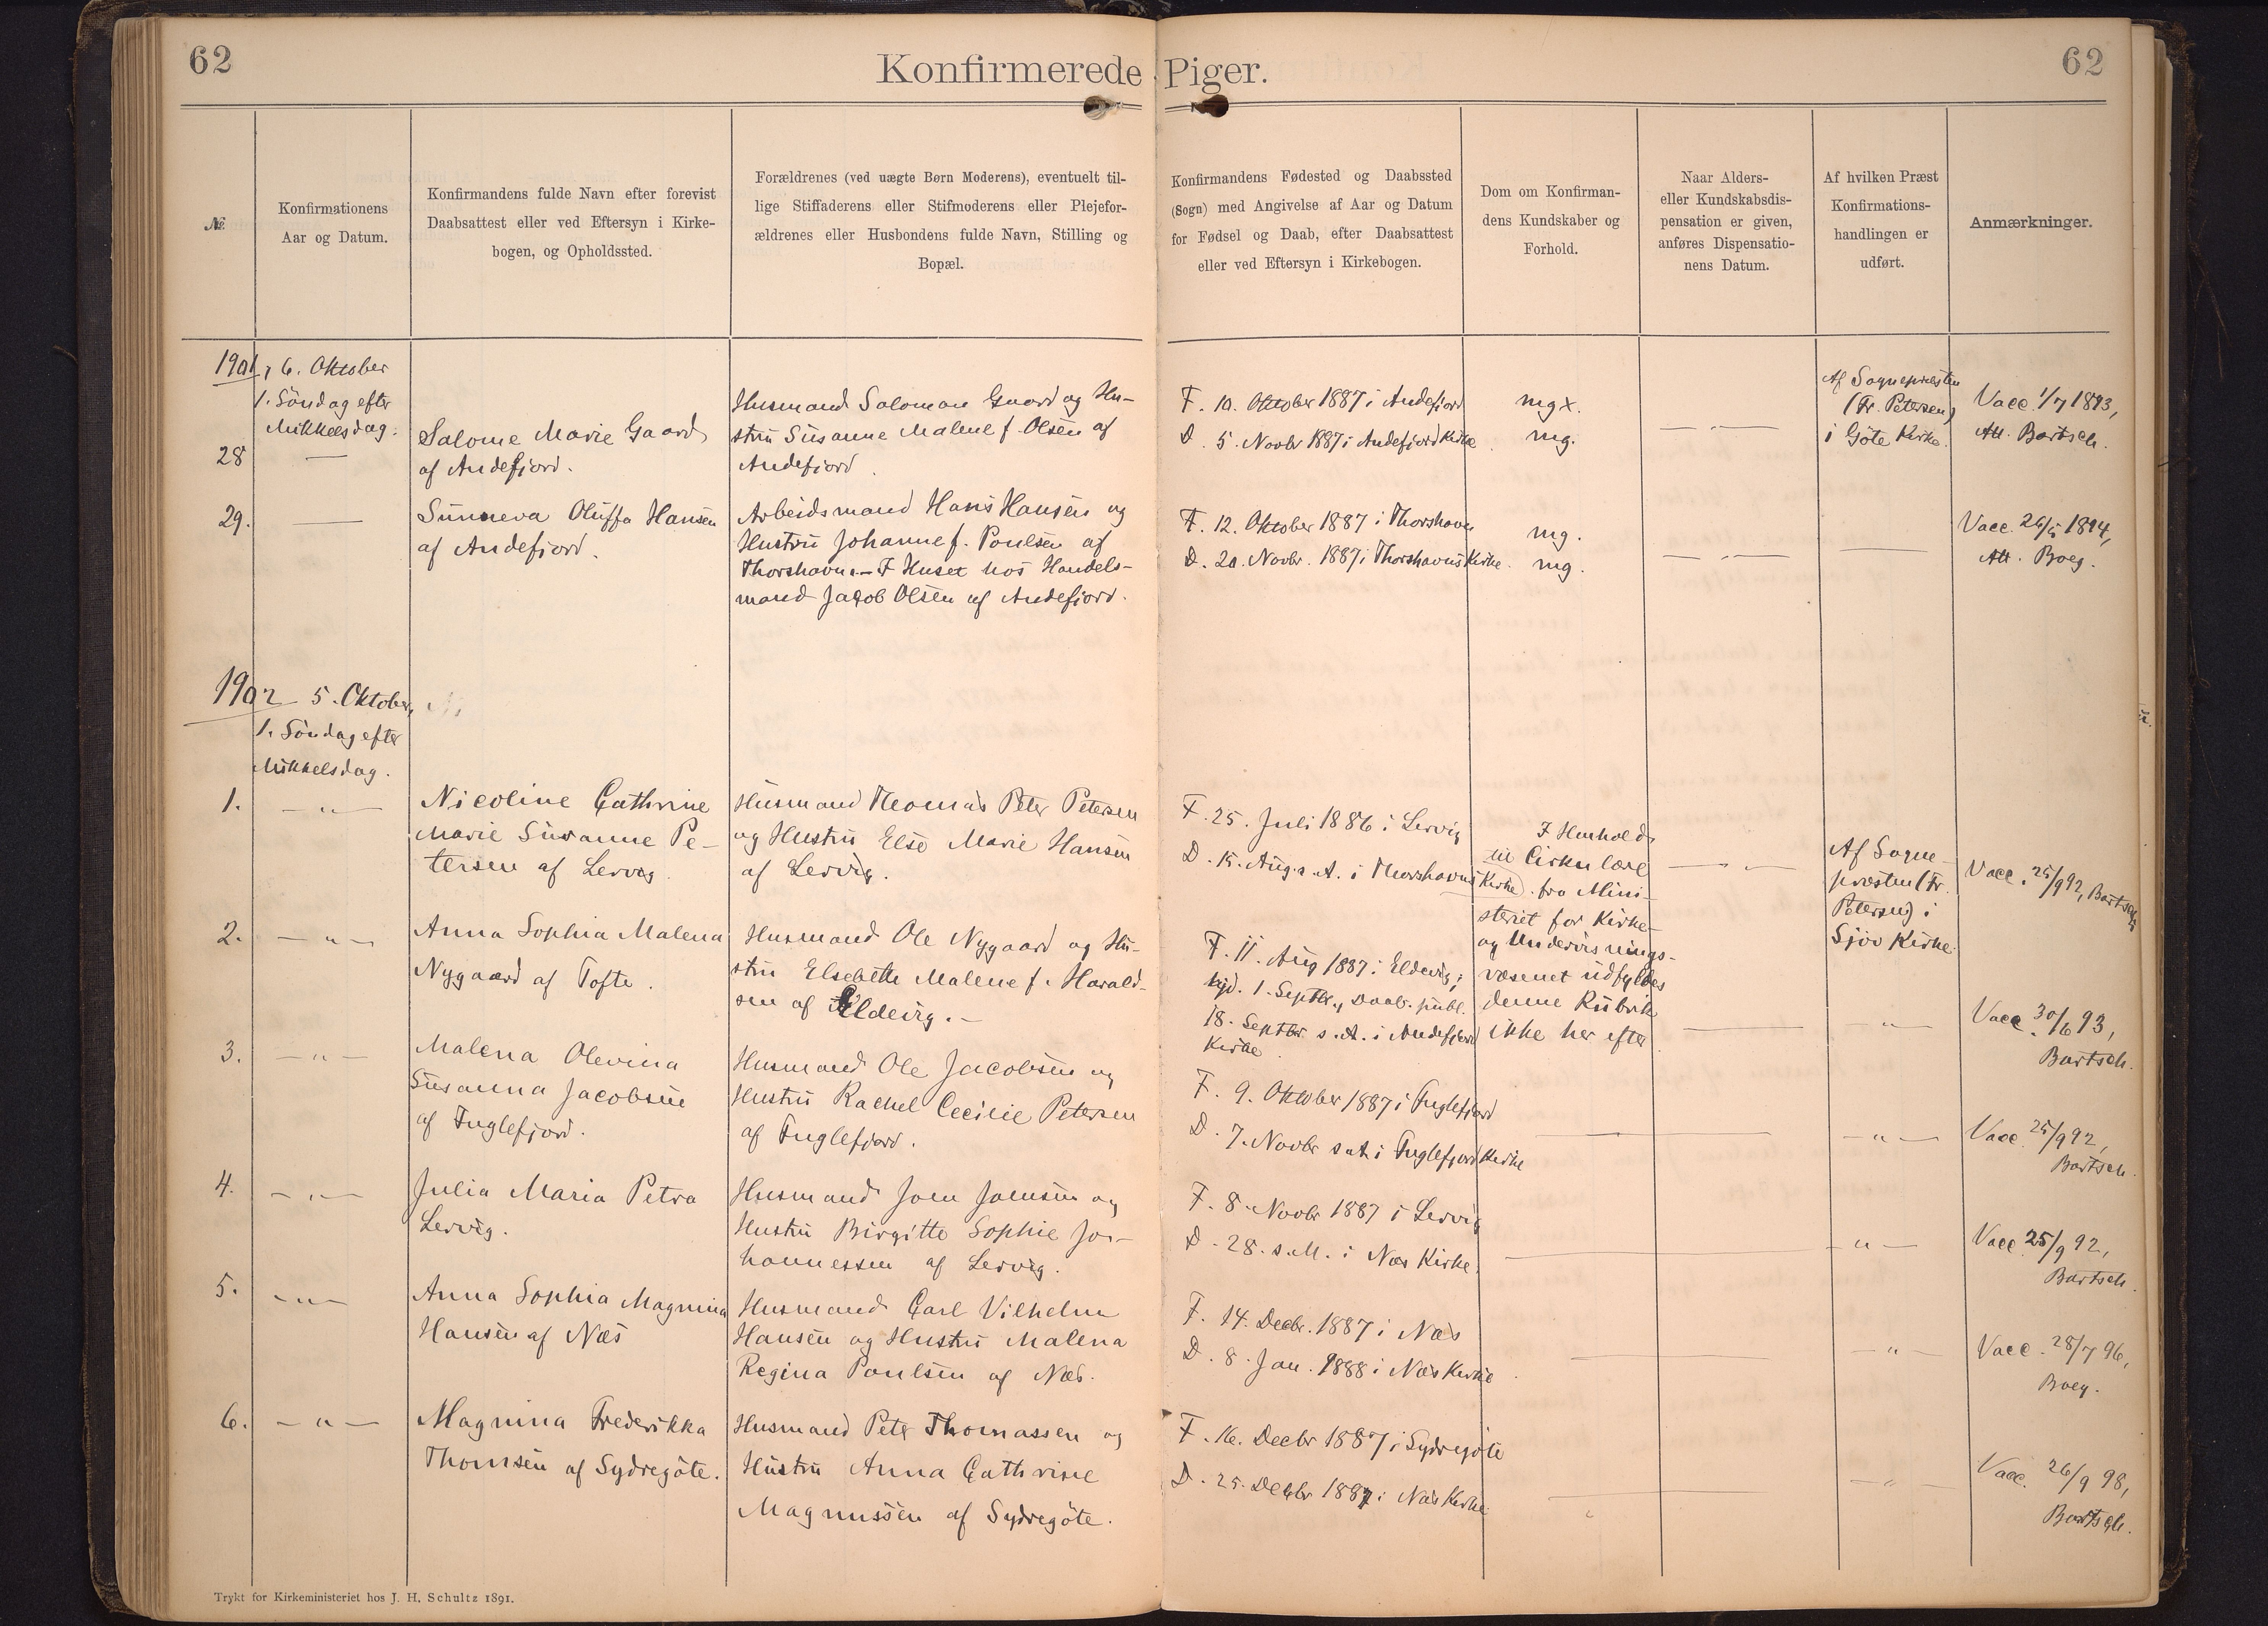 62
Konfirmerede Piger.
62
№
Konfirmationens
Aar og Datum.
Konfirmandens fulde Navn efter forevist
Daabsattest eller ved Eftersyn i Kirke-
bogen, og Opholdssted.
Forældrenes (ved uægte Børn Moderens), eventuelt til-
lige Stiffaderens eller Stifmoderens eller Plejefor-
ældrenes eller Husbondens fulde Navn, Stilling og
Bopæl.
Konfirmandens Fødested og Daabssted
(Sogn) med Angivelse af Aar og Datum
for Fødsel og Daab, efter Daabsattest
eller ved Eftersyn i Kirkebogen.
Dom om Konfirman-
dens Kundskaber og
Forhold.
Naar Alders-
eller Kundskabsdis-
pensation er given,
anføres Dispensatio-
nens Datum.
Af hvilken Præst
Konfirmations-
handlingen er
udført.
Anmærkninger.
1901, 6. Oktober
1. Söndag efter
Mikkelsdag.
28 —
Salome Marie Gaard
af Andefjord.
Husmand Salomon Gaard og Hu-
stru Susanne Malene f. Olsen af
Andefjord.
F. 10. Oktober 1887 i Andefjord
D. 5. Novbr 1887 i Andefjord Kirke.
mgx.
mg.
— " —
Af Sognepræsten
(Fr. Petersen)
i Göte Kirke.
Vacc. 1/7 1893,
Att. Bartsch.
29. —
Sunneva Oluffa Hansen
af Andefjord.
Arbeidsmand Hans Hansen og
Hustru Johanne f. Poulsen af
Thorshavn. — I Huset hos Handels-
mand Jacob Olsen af Andefjord.
F. 12. Oktober 1887 i Thorshavn
D. 20. Novbr. 1887 i Thorshavns Kirke.
mg.
mg.
— " —
—
Vacc. 26/5 1894,
Att. Boeg.
1902 5. Oktober,
1. Söndag efter
Mikkelsdag.
1. — " —
Nicoline Cathrine
Marie Susanne Pe-
tersen af Lervig
Husmand Thomas Peter Petersen
og Hustru Else Marie Hansen
af Lervig.
F. 25. Juli 1886 i Lervig
D. 15. Aug. s. A. i Thorshavns Kirke
I Henhold
til Cirkulære
fra Mini-
steriet for Kirke-
og Undervisnings-
væsenet udfyldes
denne Rubrik
ikke her efter
— " —
Af Sogne-
præsten (Fr.
Petersen) i
Sjov Kirke.
Vacc. 25/9 92, Bartsch
2. — " —
Anna Sophia Malena
Nygaard af Tofte.
Husmand Ole Nygaard og Hu-
stru Elsebeth Malene f. Harald-
sen af Eldevig. —
F. 11. Aug 1887 i Eldevig;
hjd. 1. Septbr., Daab. publ.
18. Septbr. s. A. i Andefjord
Kirke
—
"
Vacc. 30/6 93,
Bartsch.
3. — " —
Malena Olevina
Susanna Jacobsen
af Fuglefjord.
Husmand Ole Jacobsen og
Hustru Rachel Cecilie Petersen
af Fuglefjord.
F. 9. Oktober 1887 i Fuglefjord
D. 7. Novbr s. A. i Fuglefjord Kirke
—
— " —
Vacc. 25/9 92,
Bartsch.
4. — " —
Julia Maria Petra
Lervig.
Husmand Joen Joensen og
Hustru Birgitte Sophie Jo-
hannessen af Lervig.
F. 8. Novbr 1887 i Lervig
D. 28. s. M. i Næs Kirke.
—
— " —
Vacc. 25/9 92,
Bartsch.
5. — " —
Anna Sophia Magnina
Hansen af Næs
Husmand Carl Vilhelm
Hansen og Hustru Malena
Regina Poulsen af Næs.
F. 14. Decbr. 1887 i Næs
D. 8. Jan. 1888 i Næs Kirke.
—
— " —
Vacc. 28/7 96,
Boeg.
6. — " —
Magnina Frederikka
Thomsen af Sydregöte.
Husmand Peter Thomassen og
Hustru Anna Cathrine
Magnussen af Sydregöte.
F. 16. Decbr 1887 i Sydregöte
D. 25. Decbr 1887 i Næs Kirke.
—
— " —
Vacc. 26/9 98,
Bartsch.
Trykt for Kirkeministeriet hos J. H. Schultz 1891.